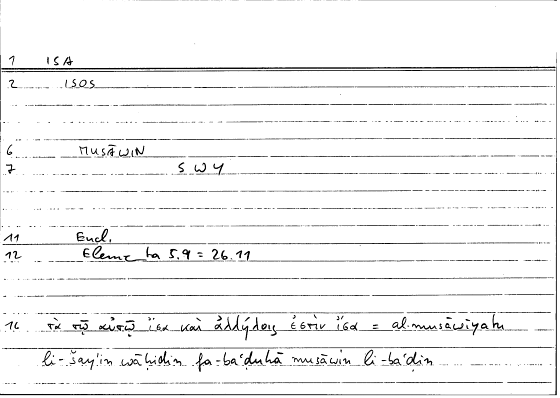 1 ISA
2 ISOS
6 MUSĀWIN
7 S W Y
11 Eucl.
12 Elementa 5.9 = 26.11
16 τὰ τῷ αὐτῷ ἴσα καὶ ἀλλήλοις ἐστὶν ἴσα = al-musāwiyatu
li-šay'in wāḥidin fa-ba'ḍuhā musāwin li-ba'ḍin